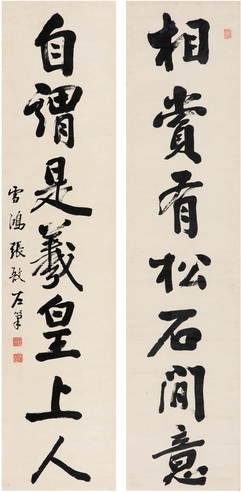 相賞有松石間意
自謂是羲皇上人
雪鴻張敔左筆